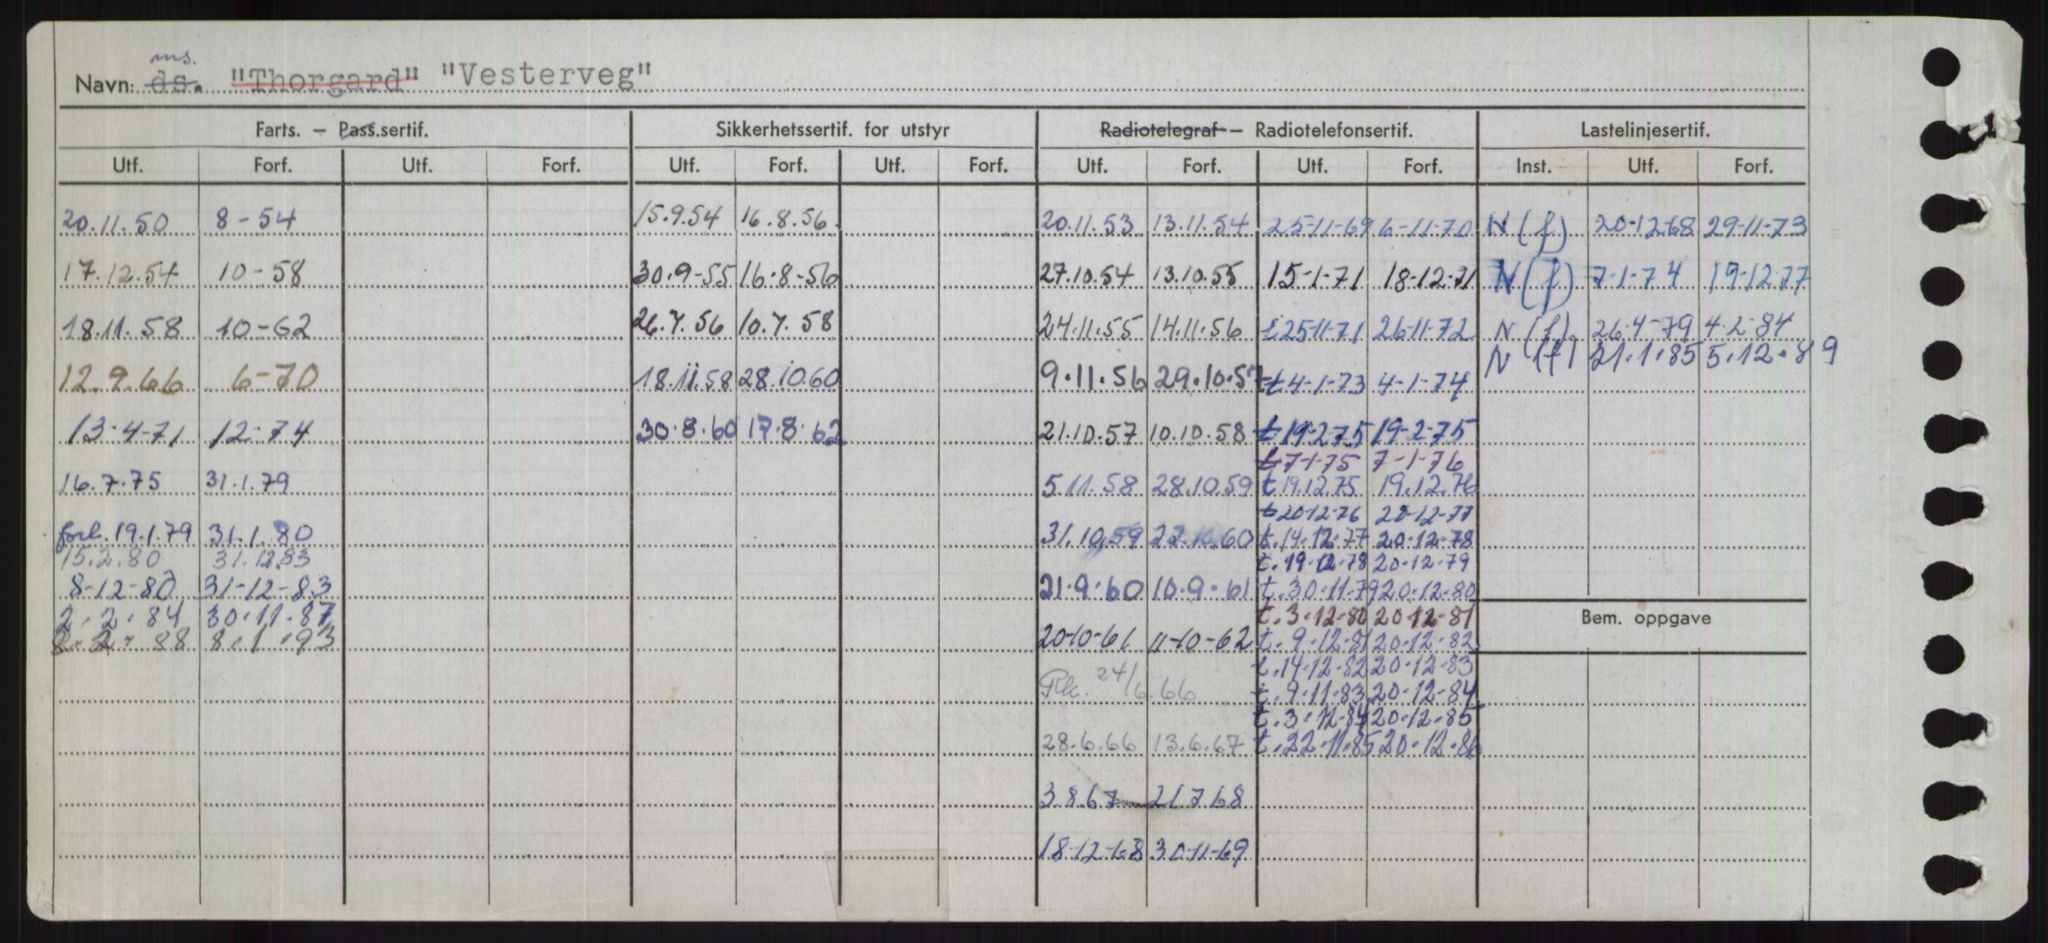 ms.
Navn: ds. "Thorgard" "Vesterveg"
Farts. – Pass.sertif. Sikkerhetssertif. for utstyr Radiotelegraf – Radiotelefonsertif. Lastelinjesertif.
Utf. Forf. Utf. Forf. Utf. Forf. Utf. Forf. Utf. Forf. Utf. Forf. Inst. Utf. Forf.
20.11.50 8-54 15.9.54 16.8.56 20.11.53 13.11.54 25-11-69 6-11-70 N(f) 20-12-68 29-11-73
17.12.54 10-58 30.9-55 16-8-56 27.10.54 13.10.55 15-1-71 18-12-71 N(f) 7-1-74 19-12-77
18.11.58 10-62 26.7.56 10.7.58 24.11.55 14.11.56 t 25-11-71 26-11-72 N(f) 26-4-79 4.2-84
N(f) 21.1.85 5.12.89
12.9.66 6-70 18.11.58 28.10.60 9.11.56 29.10.57 t 4-1-73 4-1-74
13-4-71 12-74 30.8.60 17.8.62 21.10.57 10.10.58 t 19-2-75 19-2-75
t 7-1-75 7-1-76
16.7.75 31.1.79 5.11.58 28.10.59 t 19.12.75 19.12.76
t 20-12-76 20-12-77
forl. 19.1.79 31.1.80 31.10.59 22.10.60 t.14-12-77 20-12-78
15.2.80 31.12.83 t.19-12-78 20-12-79
8-12-80 31-12-83 21.9.60 10.9.61 t.30-11-79 20-12-80
2.2.84 30.11.87 t.3-12-80 20-12-81
8.2.88 8.1.93 20-10-61 11-10-62 t.9-12-81 20-12-82
t.14-12-82 20-12-83
24/6.66 t.9-11-83 20-12-84
t.3-12-84 20-12-85
28.6.66 13.6.67 t.22-11-85 20-12-86
3 8 67 21 7 68
18-12-68 30-11-69
Bem. oppgave